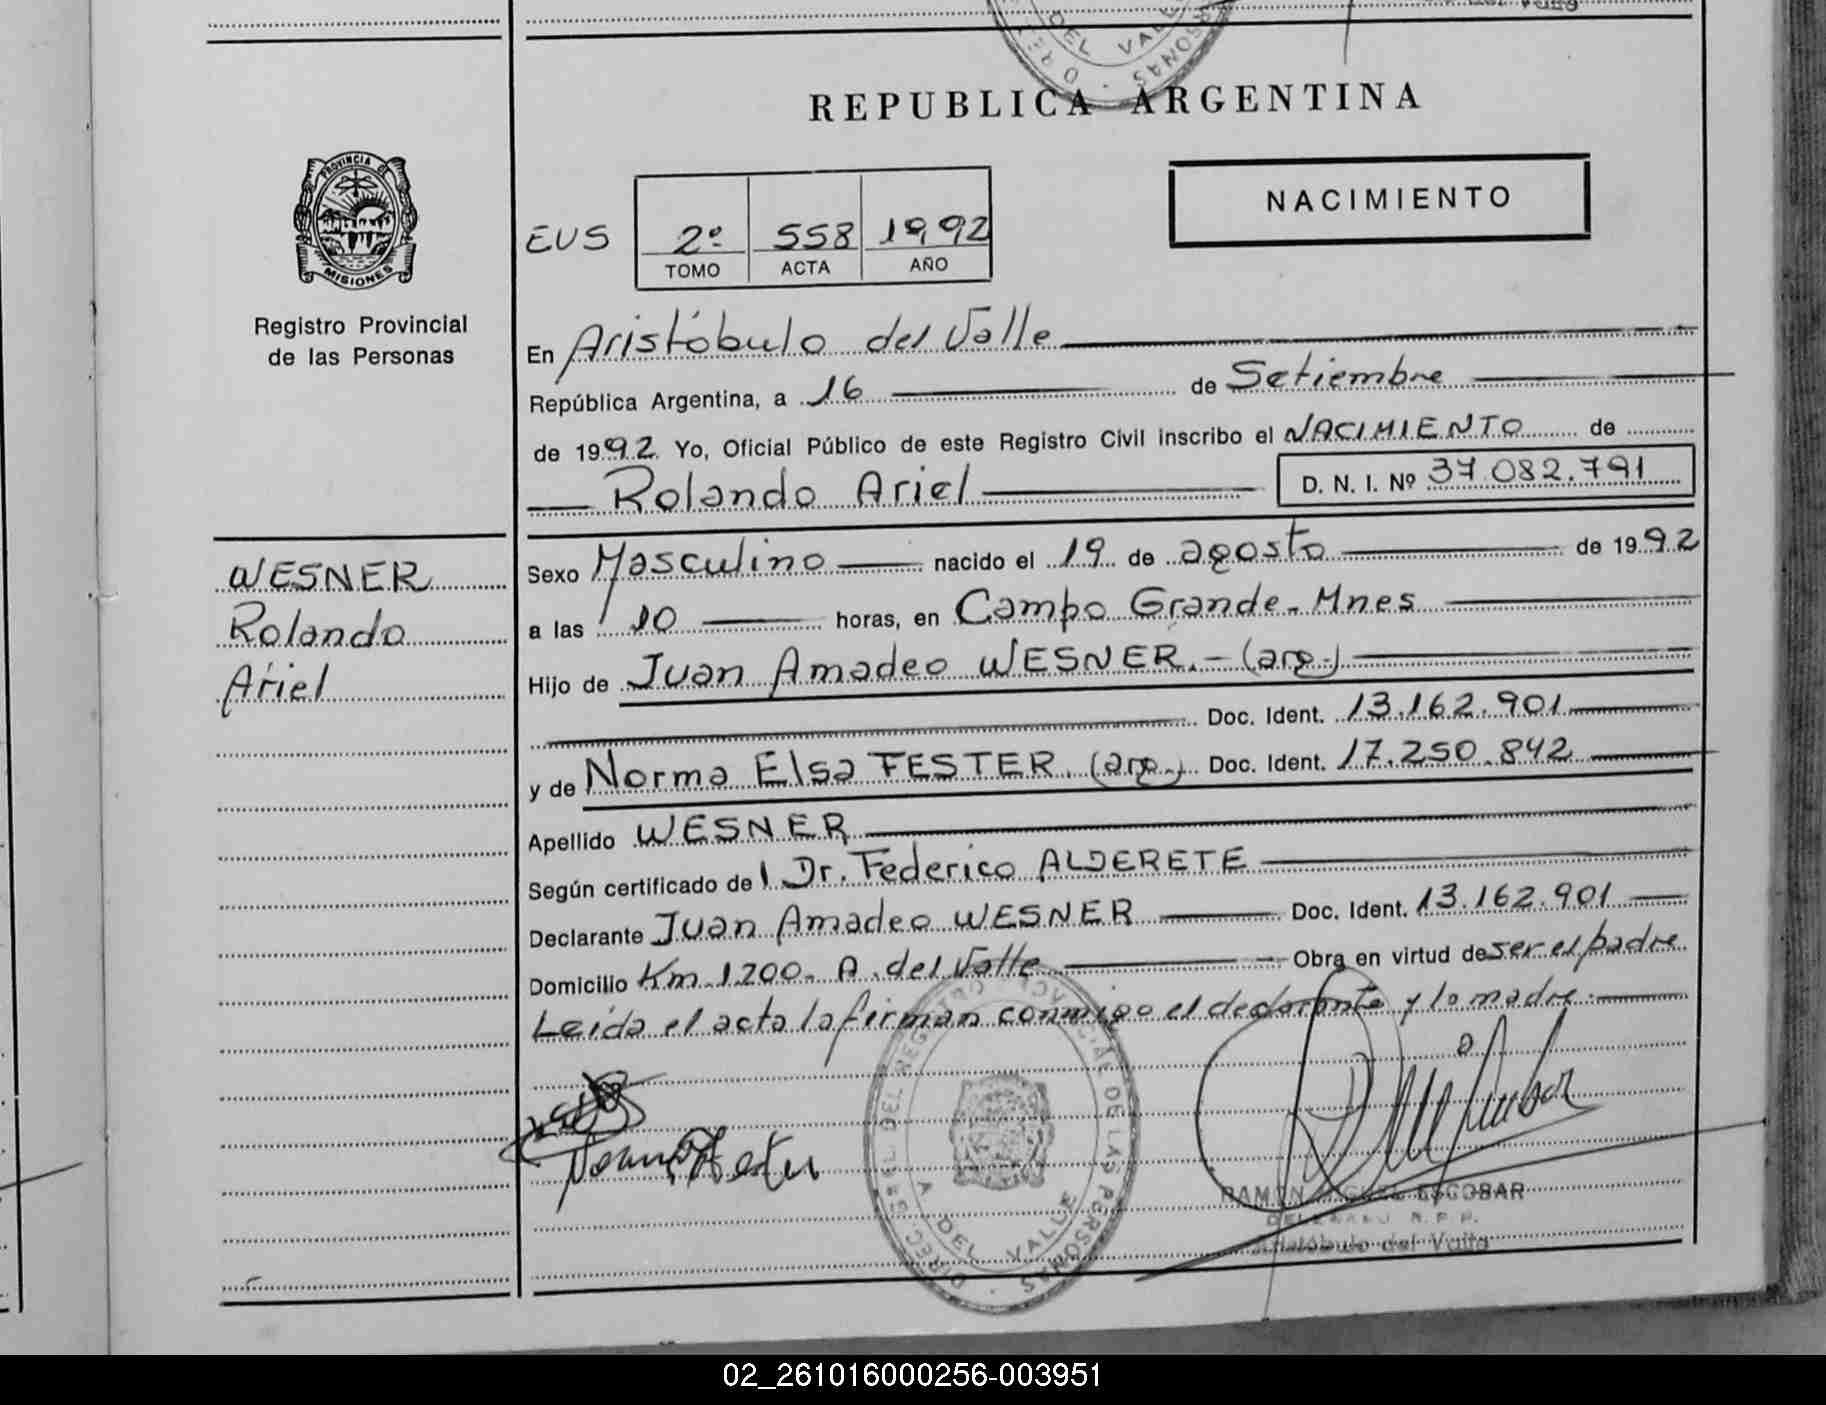 REPUBLICA ARGENTINA
PROVINCIA DE
MISIONES
Registro Provincial
de las Personas
NACIMIENTO
EUS 2º 558 1992
TOMO ACTA AÑO
En Aristóbulo del Valle
República Argentina, a 16 de Setiembre
de 1992 Yo, Oficial Público de este Registro Civil inscribo el NACIMIENTO de
Rolando Ariel D. N. I. Nº 37.082.791
WESNER
Rolando
Ariel
Sexo Masculino nacido el 19 de agosto de 1992
a las 10 horas, en Campo Grande - Mnes
Hijo de Juan Amadeo WESNER.- (arg.)
Doc. Ident. 13.162.901
y de Norma Elsa FESTER. (arg.) Doc. Ident. 17.250.842
Apellido WESNER
Según certificado de l Dr. Federico ALDERETE
Declarante Juan Amadeo WESNER Doc. Ident. 13.162.901
Domicilio Km. 1.200.- A. del Valle Obra en virtud de ser el padre
Leída el acta la firman conmigo el declarante y la madre.
DIREC. GRAL. DEL REGISTRO PROVINCIAL DE LAS PERSONAS
A. DEL VALLE
RAMON MIGUEL ESCOBAR
DELEGADO R. P. P.
Aristóbulo del Valle
02_261016000256-003951